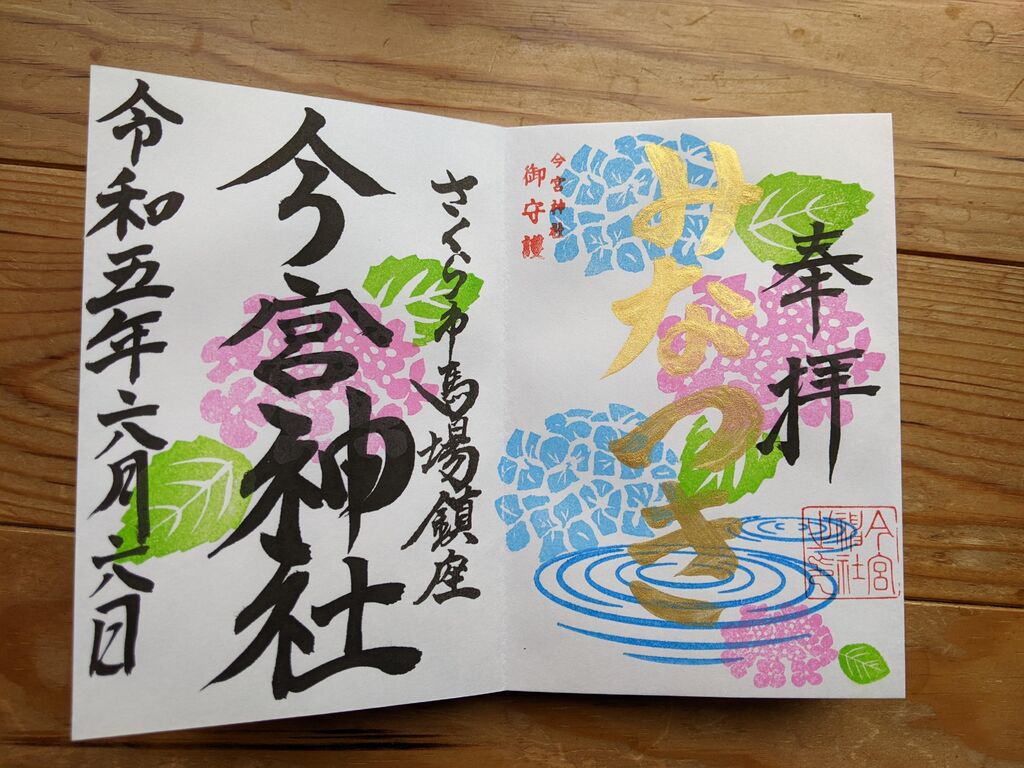 奉拝
今宮神社之印
みなつき
今宮神社
御守護
さくら市馬場鎮座
今宮神社
令和五年六月六日